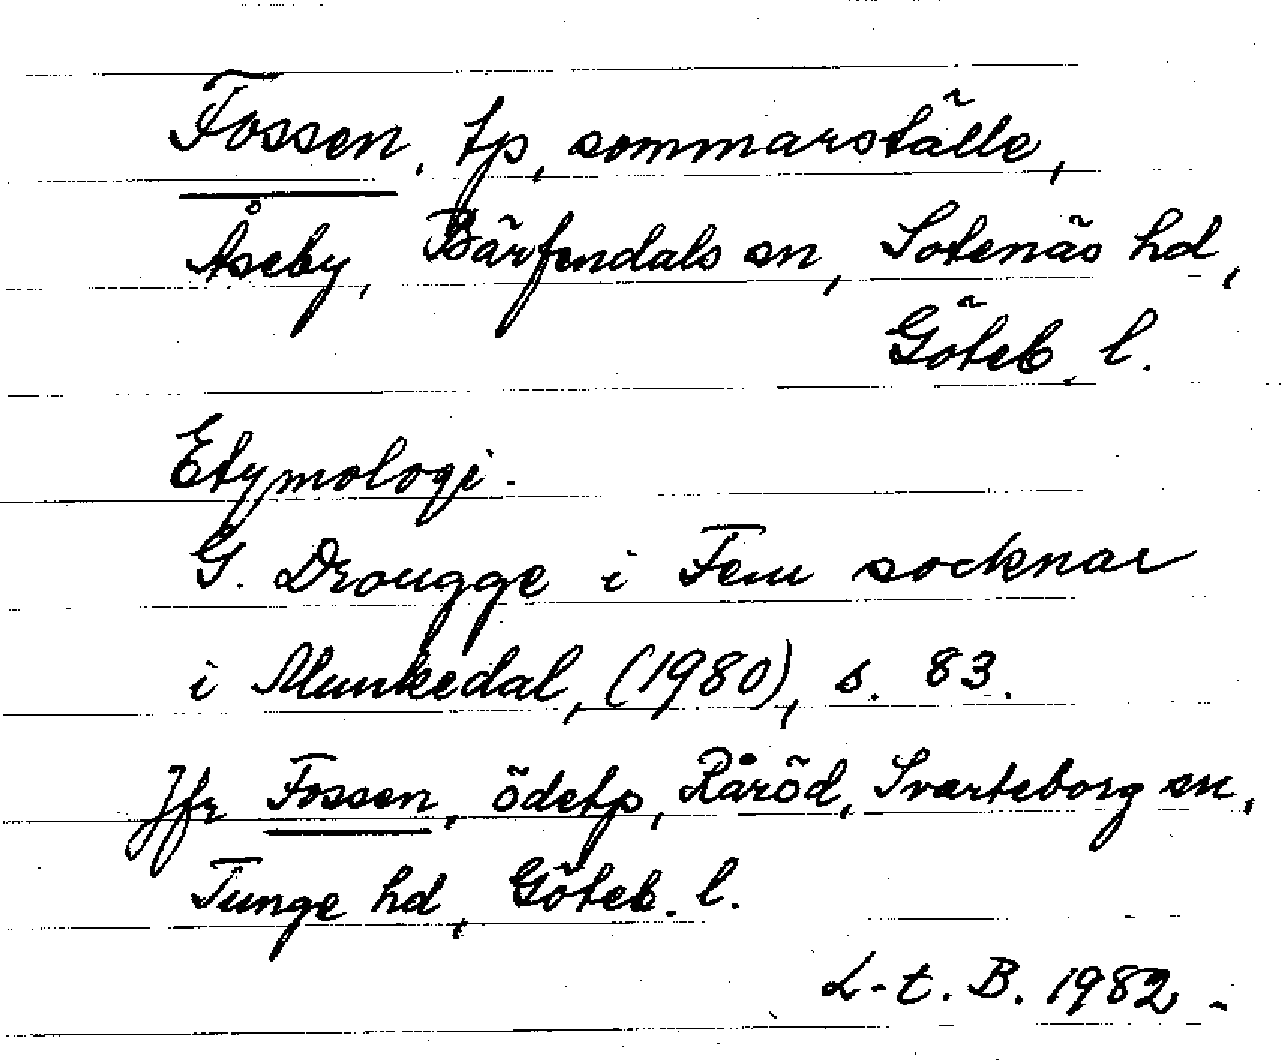 Fossen, tp, sommarställe,
Åseby, Bärfendals sn, Sotenäs hd,
Göteb. l.
Etymologi.
G. Drougge i Fem socknar
i Munkedal, (1980), s. 83.
Jfr Fossen, ödetp, Råröd, Svarteborg sn,
Tunge hd, Göteb. l.
L-t. B. 1982.